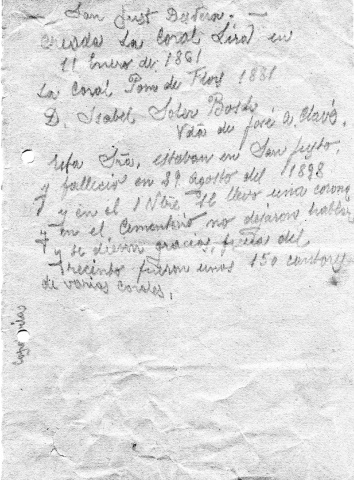 San Just Desvern.-
Creada La Coral Lira en
11 Enero de 1861
La Coral Pom de Flors 1881
D. Isabel Soler Bosch
Vda de José A. Clavé.
Esta Sña, estaban en San Justo,
y fallecio en 29 agosto del 1898
y en el 1 Nbre se llevo una corona
y en el Cementerio no dejaron hablar
y se dieron gracias, fueras del
recinto fueron unos 150 cantores
de varias corales.